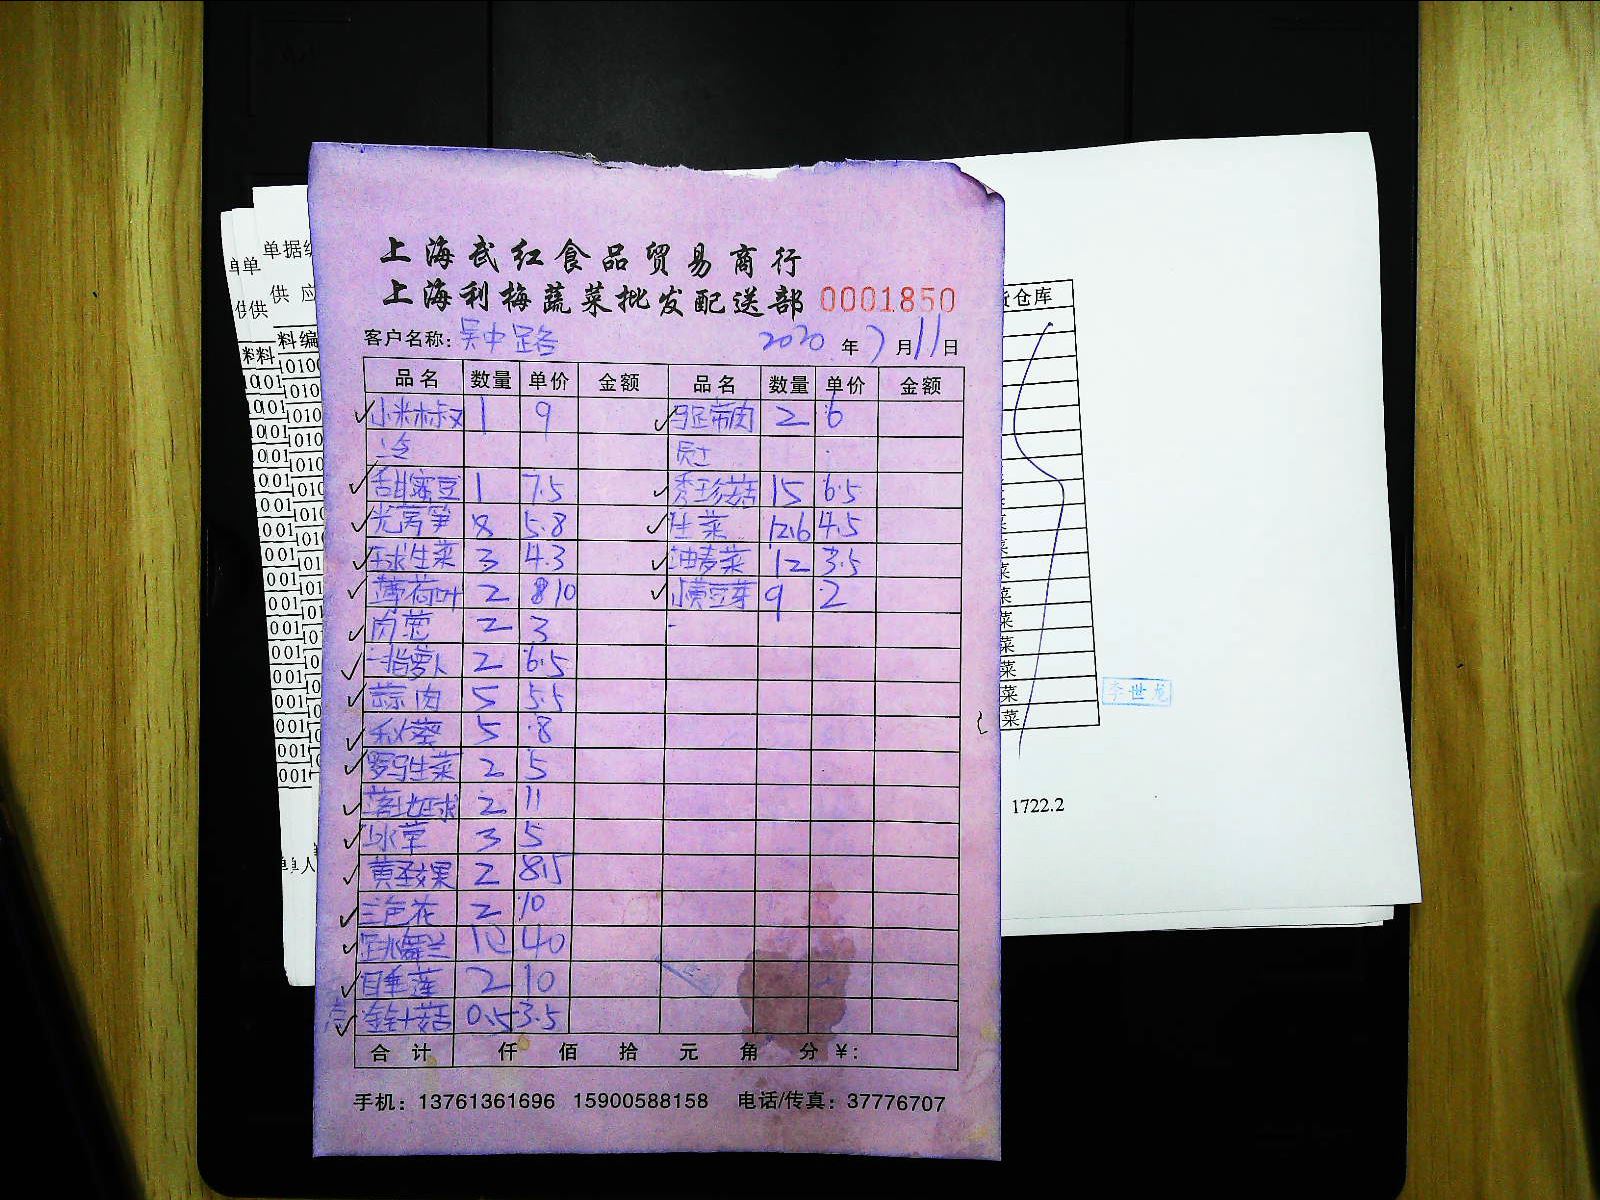 上海武红食品贸易商行
上海利梅蔬菜批发配送部 0001850
客户名称: 吴中路 2020 年 7 月 11 日
品名 数量 单价 金额 品名 数量 单价 金额
小米椒 1 9 2 6
甜蜜豆 1 7.5 秀珍菇 15 6.5
光莴笋 8 5.8 生菜 12.6 4.5
球生菜 3 4.3 油麦菜 12 3.5
薄荷叶 2 10 小黄豆芽 9 2
肉葱 2 3
一指萝卜 2 6.5
蒜肉 5 5.5
秋葵 5 8
罗马生菜 2 5
2 11
冰草 3 5
黄 果 2 8.5
三色花 2 10
跳舞兰 40
2 10
金针菇 0.5 3.5
合计 仟 佰 拾 元 角 分 ¥:
手机: 13761361696 15900588158 电话/传真: 37776707
单据
供应
料编
仓库
菜
菜
菜
菜
菜
菜
菜
李世龙
1722.2